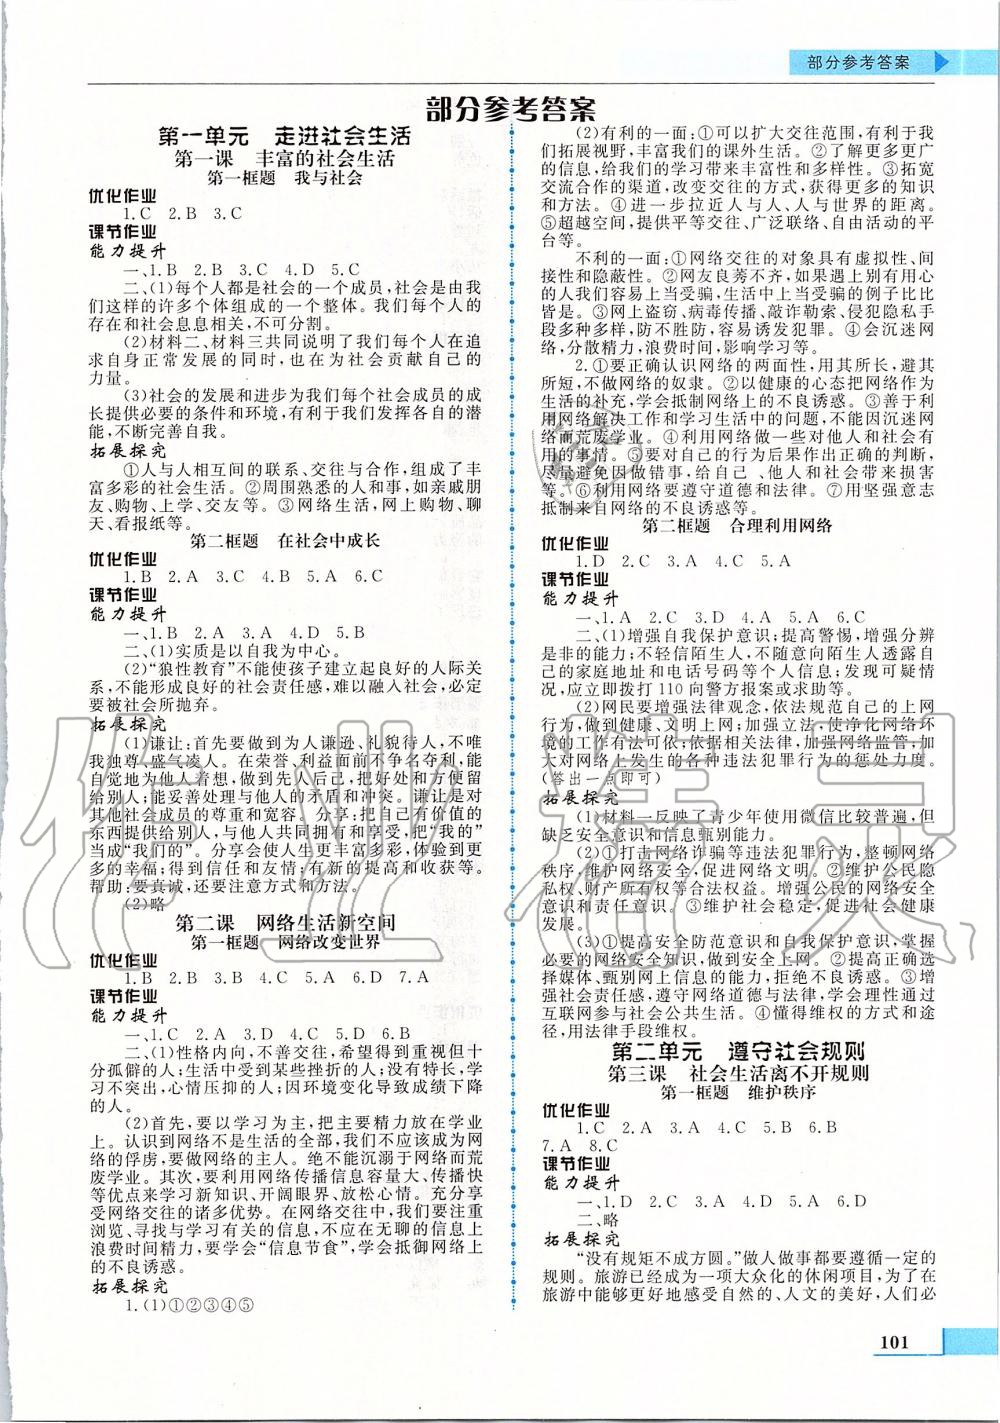 部分参考答案
部分参考答案
第一单元　走进社会生活
第一课　丰富的社会生活
第一框题　我与社会
优化作业
1.C　2.B　3.C
课节作业
能力提升
一、1.B　2.B　3.C　4.D　5.C
二、(1)每个人都是社会的一个成员,社会是由我
们这样的许多个体组成的一个整体。我们每个人的
存在和社会息息相关,不可分割。
(2)材料二、材料三共同说明了我们每个人在追
求自身正常发展的同时,也在为社会贡献自己的
力量。
(3)社会的发展和进步为我们每个社会成员的成
长提供必要的条件和环境,有利于我们发挥各自的潜
能,不断完善自我。
拓展探究
①人与人相互间的联系、交往与合作,组成了丰
富多彩的社会生活。②周围熟悉的人和事,如亲戚朋
友、购物、上学、交友等。③网络生活,网上购物、聊
天、看报纸等。
第二框题　在社会中成长
优化作业
1.B　2.A　3.C　4.B　5.A　6.C
课节作业
能力提升
一、1.B　2.A　3.A　4.D　5.B
二、(1)实质是以自我为中心。
(2)“狼性教育”不能使孩子建立起良好的人际关
系,不能形成良好的社会责任感,难以融入社会,必定
要被社会所抛弃。
拓展探究
(1)谦让:首先要做到为人谦逊、礼貌待人,不唯
我独尊、盛气凌人。在荣誉、利益面前不争名夺利,能
自觉地为他人着想,做到先人后己,把好处和方便留
给别人;能妥善处理与他人的矛盾和冲突。谦让是对
其他社会成员的尊重和宽容。分享:把自己有价值的
东西提供给别人,与他人共同拥有和享受,把“我的”
当成“我们的”。分享会使人生更丰富多彩,体验到更
多的幸福;得到信任和友情;有新的提高和收获等。
帮助:要真诚,还要注意方式和方法。
(2)略
第二课　网络生活新空间
第一框题　网络改变世界
优化作业
1.B　2.B　3.B　4.C　5.D　6.D　7.A
课节作业
能力提升
一、1.C　2.A　3.D　4.C　5.D　6.B
二、(1)性格内向,不善交往,希望得到重视但十
分孤僻的人;生活中受到某些挫折的人;没有特长,干
什么都不行,心情压抑的人;因环境变化导致成绩下降
的人。
(2)首先,要以学习为主,把主要精力放在学业
上。认识到网络不是生活的全部,我们不应该成为网
络的俘虏,要做网络的主人。绝不能沉溺于网络而荒
废学业。其次,要利用网络传播信息容量大、传播快
等优点来学习新知识、开阔眼界、放松心情。充分享
受网络交往的诸多优势。在网络交往中,我们要注重
浏览、寻找与学习有关的信息,不应在无聊的信息上
浪费时间精力,要学会“信息节食”,学会抵御网络上
的不良诱惑。
拓展探究
1.(1)①②③④⑤
(2)有利的一面:①可以扩大交往范围,有利于我
们拓展视野,丰富我们的课外生活。②了解更多更广
的信息,给我们的学习带来丰富性和多样性。③拓宽
交流合作的渠道,改变交往的方式,获得更多的知识
和方法。④进一步拉近人与人、人与世界的距离。
⑤超越空间,提供平等交往、广泛联络、自由活动的平
台等。
不利的一面:①网络交往的对象具有虚拟性、间
接性和隐蔽性。②网友良莠不齐,如果遇到别有用心
的人我们容易上当受骗,生活中上当受骗的例子比比
皆是。③网上盗窃、病毒传播、敲诈勒索、侵犯隐私手
段多种多样,防不胜防,容易诱发犯罪。④会沉迷网
络,分散精力,浪费时间,影响学习等。
2.①要正确认识网络的两面性,用其所长,避其所
短,不做网络的奴隶。②以健康的心态把网络作为
生活的补充,学会抵制网络上的不良诱惑。③善于利
用网络解决工作和学习生活中的问题,不能因沉迷网
络而荒废学业。④利用网络做一些对他人和社会有
用的事情。⑤要对自己的行为后果作出正确的判断,
尽量避免因做错事,给自己、他人和社会带来损害
等。⑥利用网络要遵守道德和法律。⑦用坚强意志
抵制来自网络的不良诱惑等。
第二框题　合理利用网络
优化作业
1.D　2.C　3.B　4.C　5.A
课节作业
能力提升
一、1.A　2.C　3.A　4.D　5.A　6.C
二、(1)增强自我保护意识;提高警惕,增强分辨
是非的能力;不轻信陌生人,不随意向陌生人透露自
己的家庭地址和电话号码等个人信息;发现可疑情
况,应立即拨打110向警方报案或求助等。
(2)网民要增强法律观念,依法规范自己的上网
行为,做到健康、文明上网;加强立法,使净化网络环
境的工作有法可依;根据相关法律,加强网络监管;加
大对网络上发生的各种违法犯罪行为的惩处力度。
(答出一点即可)
拓展探究
(1)材料一反映了青少年使用微信比较普遍,但
缺乏安全意识和信息甄别能力。
(2)①打击网络诈骗等违法犯罪行为,整顿网络
秩序,维护网络安全,促进网络文明。②维护公民隐
私权、财产所有权等合法权益。增强公民的网络安全
意识和责任意识。③维护社会稳定,促进社会和谐发
展。
(3)①提高安全防范意识和自我保护意识,掌握
必要的网络安全知识,做到安全上网。②提高正确选
择媒体、甄别网上信息的能力,拒绝不良诱惑。③增
强社会责任感,遵守网络道德与法律,学会理性通过
互联网参与社会公共生活。④懂得维权的方式和途
径,用法律手段维权。
第二单元　遵守社会规则
第三课　社会生活离不开规则
第一框题　维护秩序
优化作业
1.C　2.A　3.A　4.C　5.B　6.B
7.A　8.C
课节作业
能力提升
一、1.D　2.C　3.A　4.D　5.A　6.D
二、略
拓展探究
“没有规矩不成方圆。”做人做事都要遵循一定的
规则。旅游已经成为一项大众化的休闲项目,为了在
旅游中能够更好地感受自然的、人文的美好,人们必
101
作业精灵